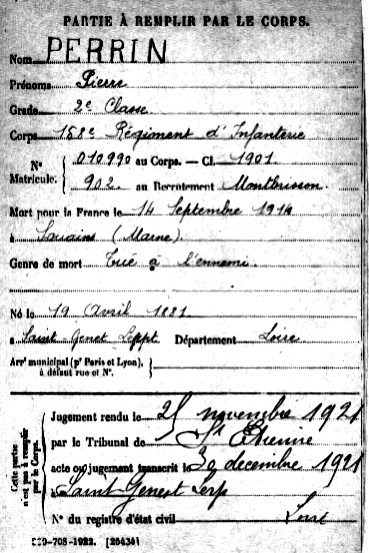 PARTIE À REMPLIR PAR LE CORPS.
Nom PERRIN
Prénoms Pierre
Grade 2e Classe
Corps 158e Régiment d'Infanterie
N° Matricule. { 010990 au Corps. — Cl. 1901
902. au Recrutement Montbrisson
Mort pour la France le 14 Septembre 1914
à Souains (Marne).
Genre de mort Tué à l'ennemi.
Né le 19 Avril 1881
à Saint Genet Leppt Département Loire
Arrt municipal (pr Paris et Lyon), à défaut rue et N°. }
Cette partie n'est pas à remplir par le Corps.
Jugement rendu le 25 novembre 1921
par le Tribunal de St Etienne
acte ou jugement transcrit le 30 decembre 1921
à Saint Genest Lerp
N° du registre d'état civil
708-1922. [26434]